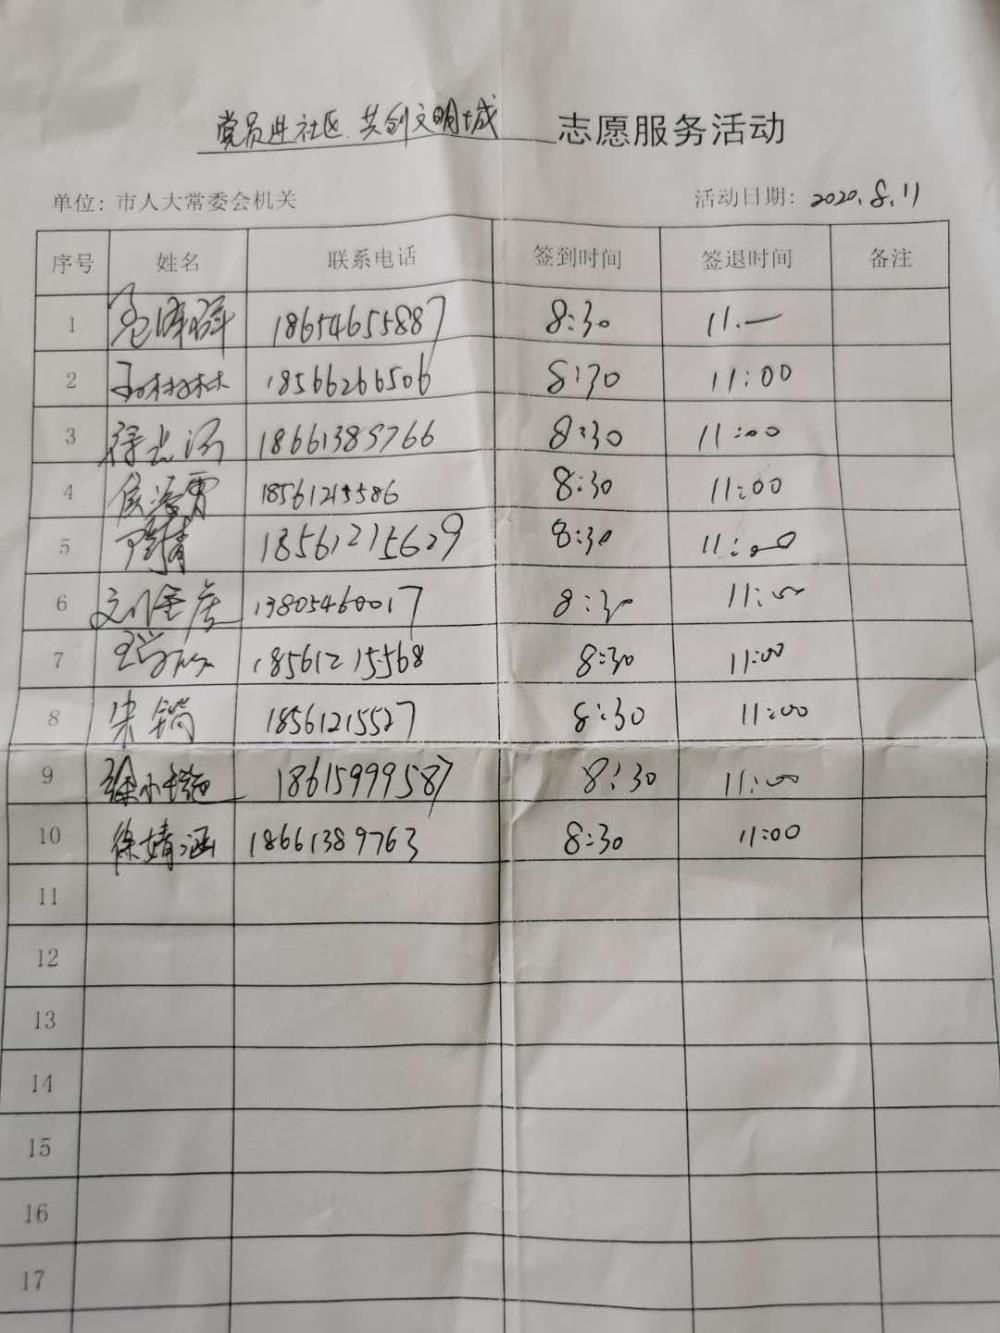 党员进社区 共创文明城 志愿服务活动
单位: 市人大常委会机关 活动日期: 2020.8.11
序号 姓名 联系电话 签到时间 签退时间 备注
1 18654655887 8:30 11:00
2 孙树林 18566266506 8:30 11:00
3 18661389766 8:30 11:00
4 18561215586 8:30 11:00
5 18561215629 8:30 11:00
6 13805460017 8:30 11:00
7 18561215568 8:30 11:00
8 宋锴 18561215527 8:30 11:00
9 18615999587 8:30 11:00
10 徐婧涵 18661389763 8:30 11:00
11
12
13
14
15
16
17